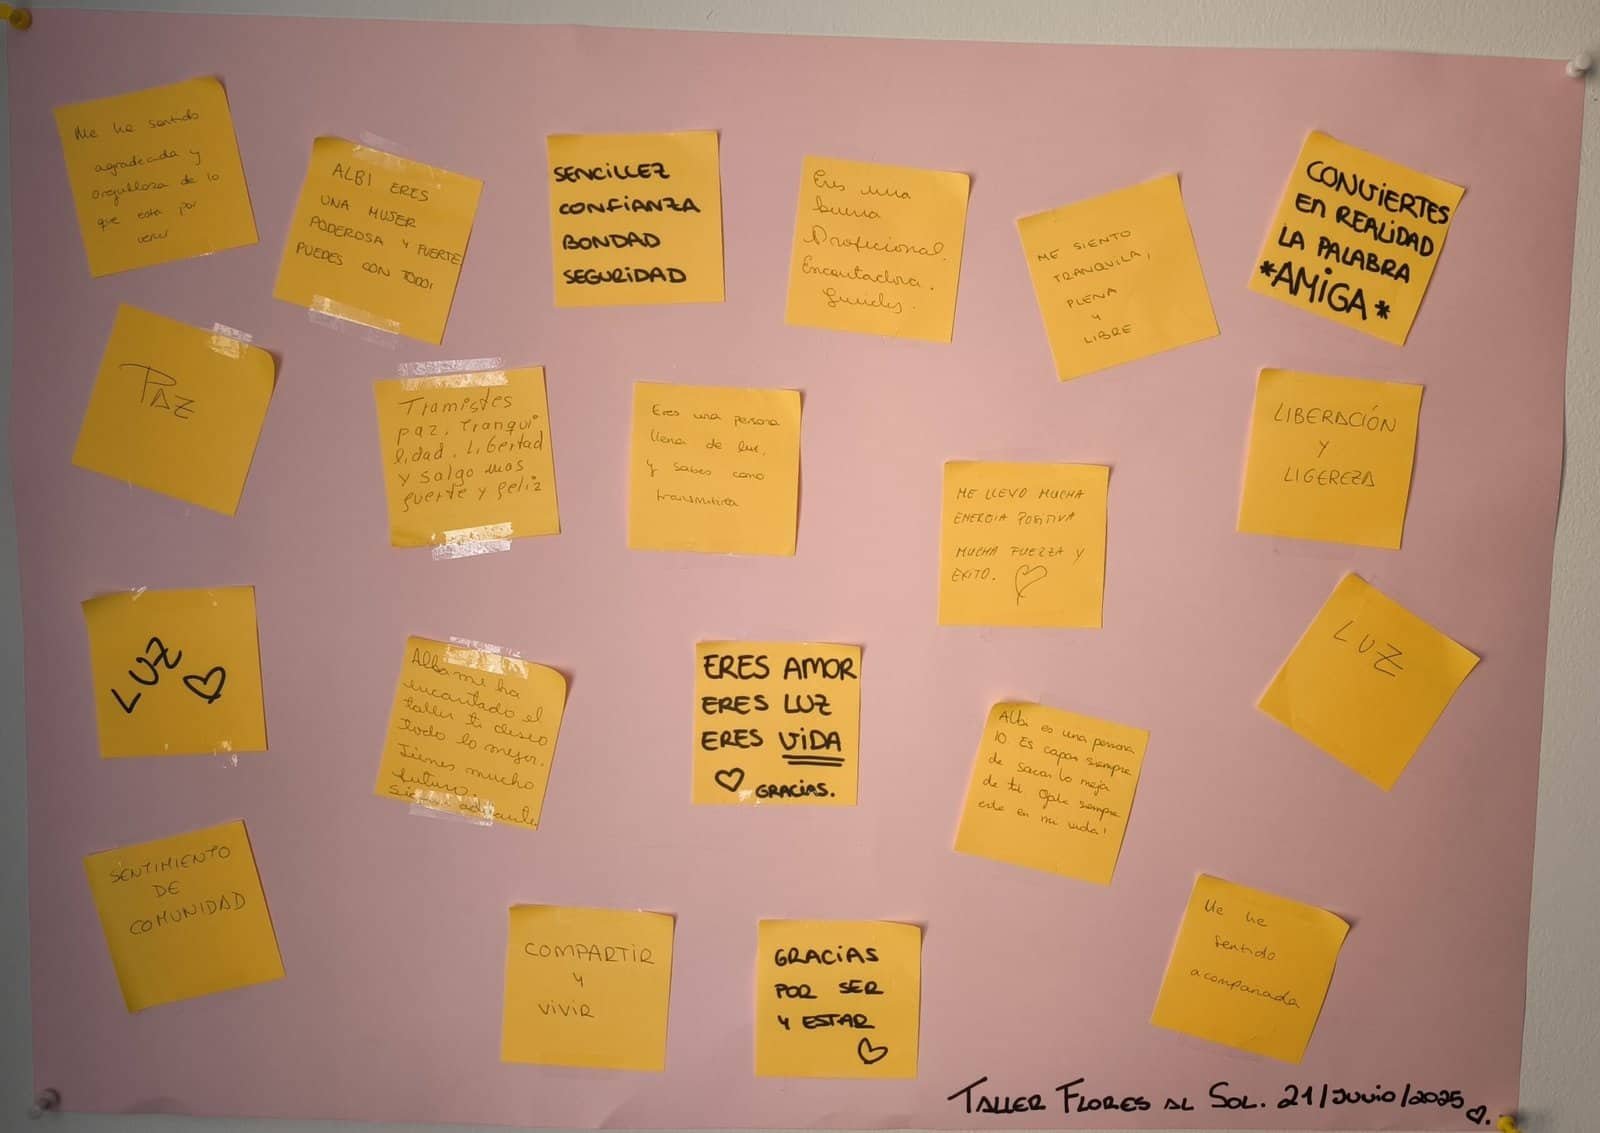 Me he sentido
agradecida y
orgullosa de lo
que esta por
venir
ALBI ERES
UNA MUJER
PODEROSA Y FUERTE
PUEDES CON TODO!
SENCILLEZ
CONFIANZA
BONDAD
SEGURIDAD
Eres una
buena
Profecional.
Encantadora.
ME SIENTO
TRANQUILA,
PLENA
Y
LIBRE
CONVIERTES
EN REALIDAD
LA PALABRA
*AMIGA*
PAZ
Tramistes
paz, Tranqui
lidad. Libertad
y salgo mas
fuerte y feliz
Eres una persona
llena de luz,
y sabes como
transmitirla
ME LLEVO MUCHA
ENERGIA POSITIVA
MUCHA FUERZA Y
EXITO.
LIBERACIÓN
Y
LIGEREZA
LUZ
Alba me ha
encantado el
taller te deseo
todo lo mejor.
Tienes mucho
futuro.
Siempre adelante
ERES AMOR
ERES LUZ
ERES VIDA
GRACIAS.
Albi es una persona
10. Es capaz siempre
de sacar lo mejor
de ti! Ojala siempre
este en mi vida!
LUZ
SENTIMIENTO
DE
COMUNIDAD
COMPARTIR
Y
VIVIR
GRACIAS
POR SER
Y ESTAR
Me he
sentido
acompañada
TALLER FLORES AL SOL. 21/JUNIO/2025